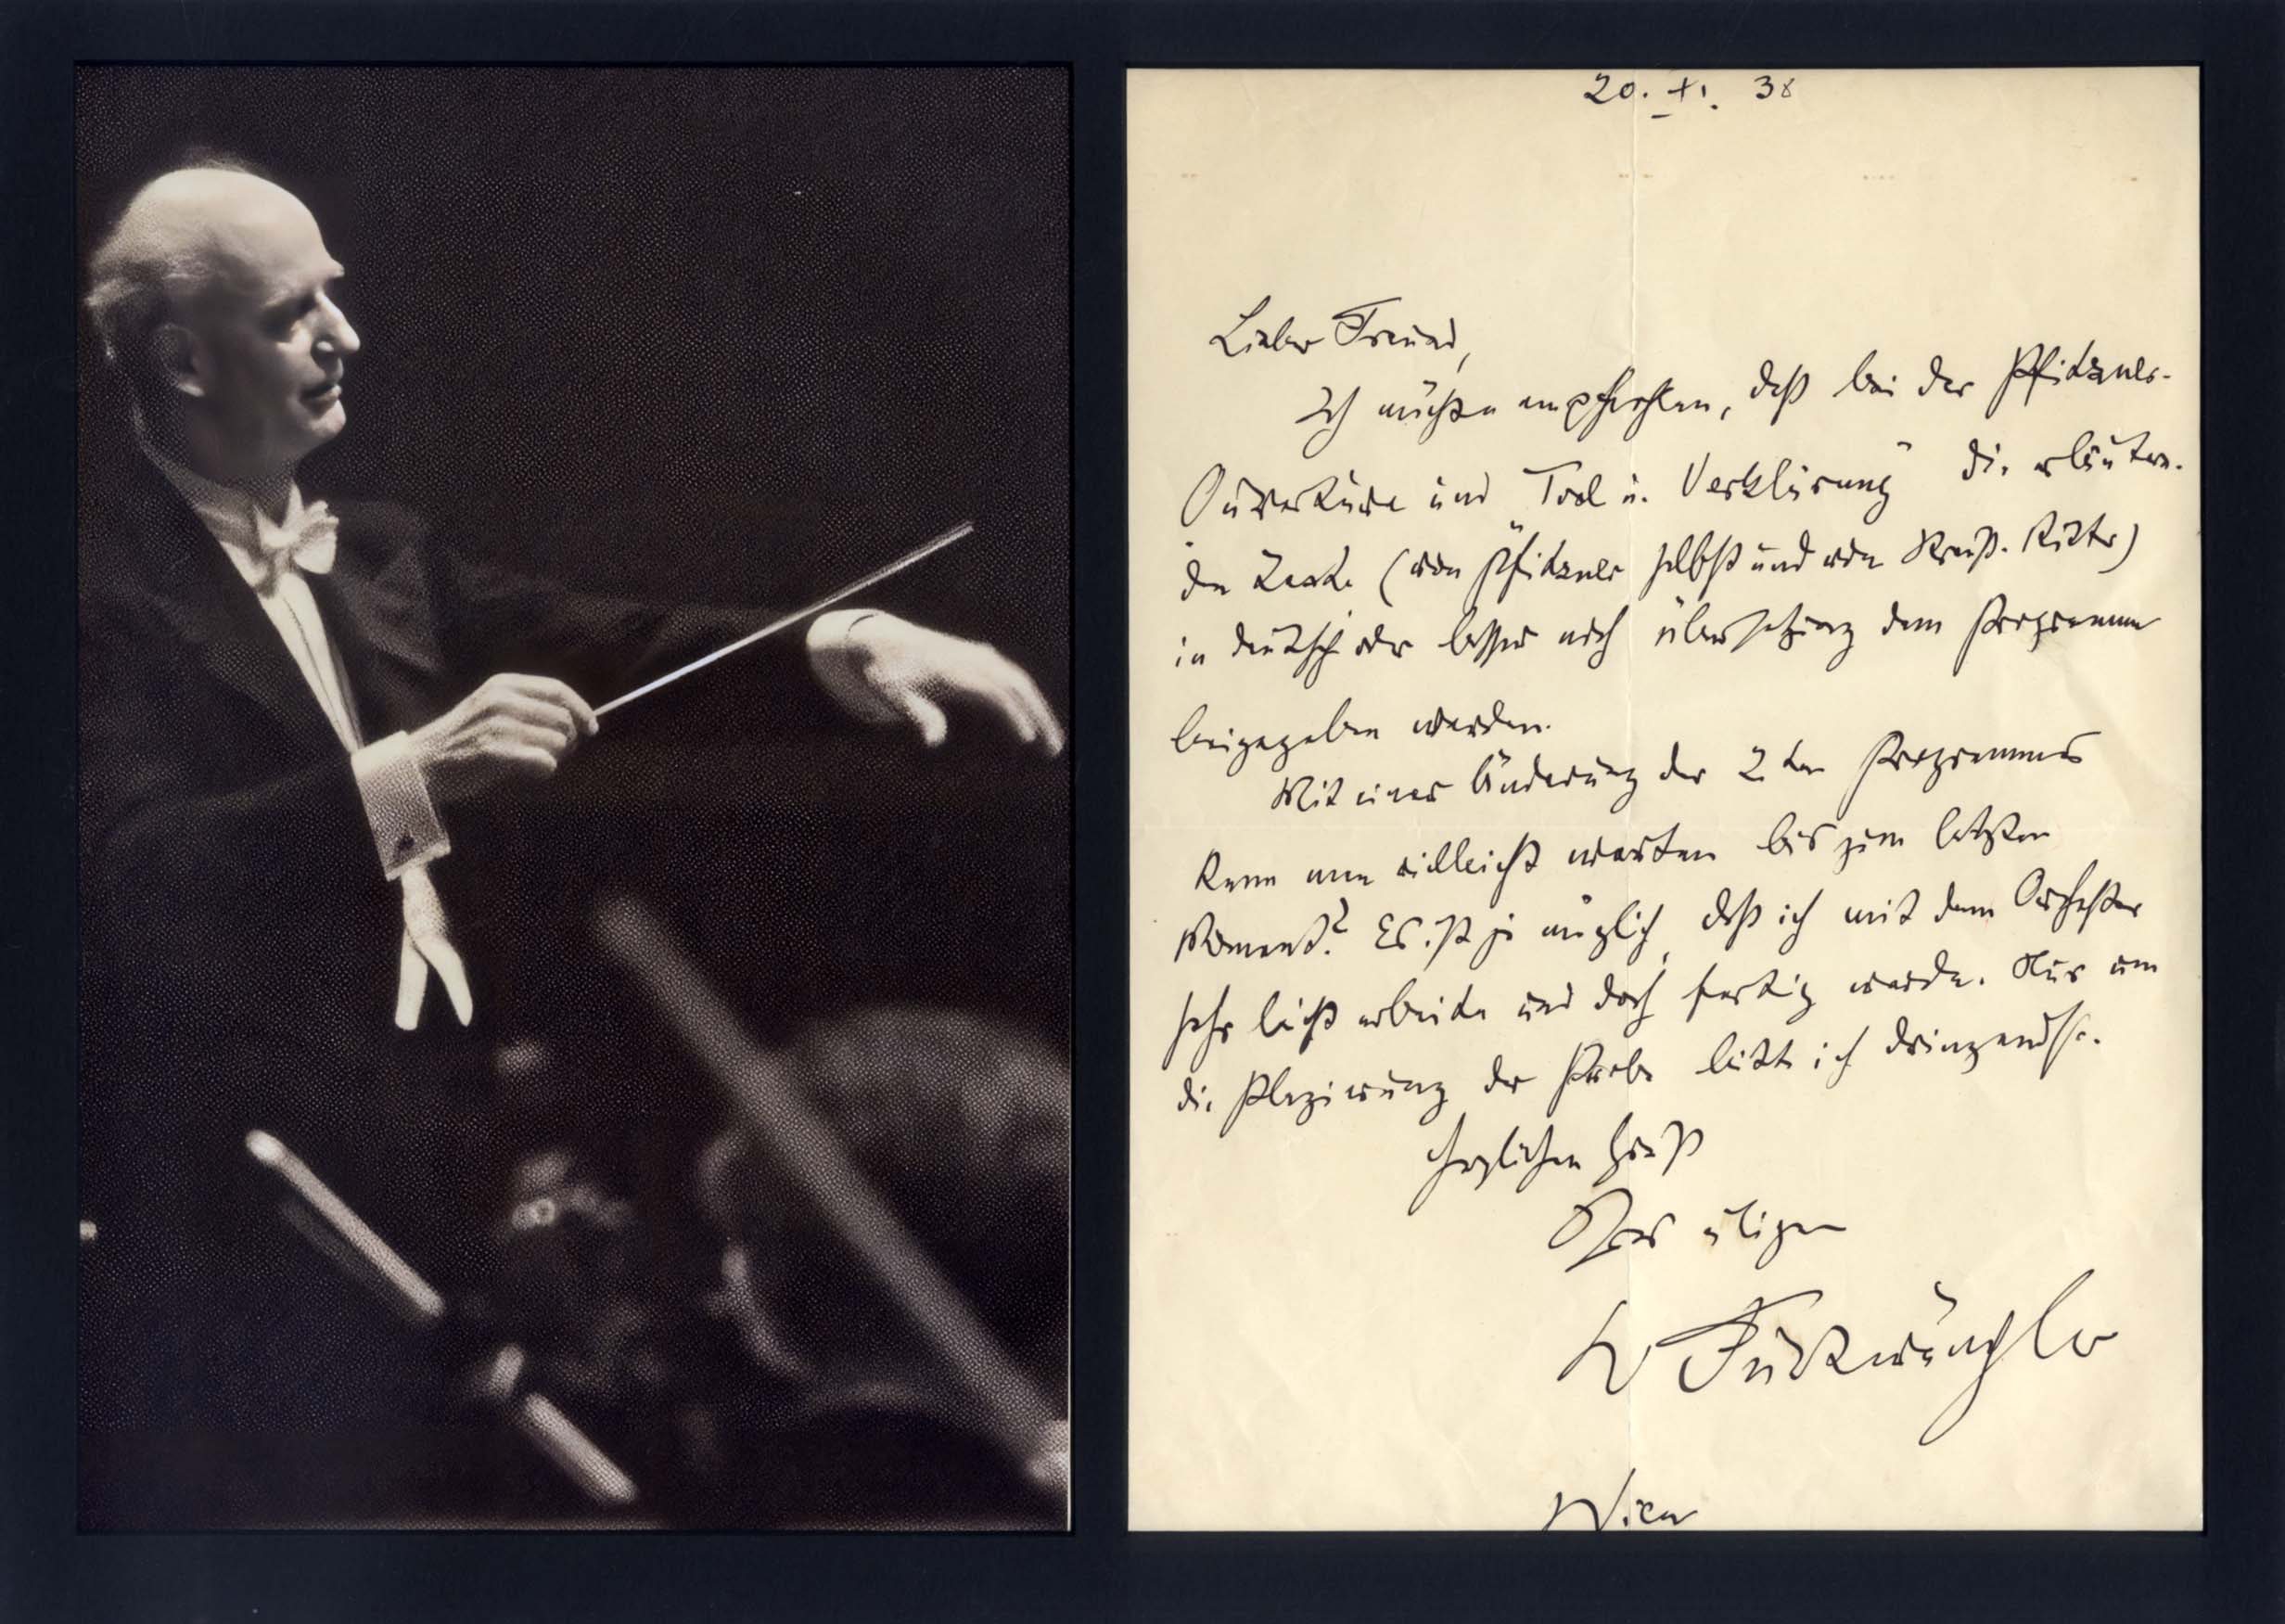 20. XI. 38
Lieber Freund,
Ich möchte empfehlen, daß bei der Pfitzner-
Ouvertüre und "Tod u. Verklärung" die erläutern-
den Texte (von Pfitzner selbst und von Strauß-Ritter)
in deutsch oder besser noch übersetzung dem Programm
beigegeben werden.
Mit einer Änderung des 2ten Programmes
kann man vielleicht warten bis zum letzten
Moment? Es ist ja möglich, daß ich mit dem Orchester
sehr leicht arbeite und doch fertig werde. Nur um
die Plazierung der Probe bitte ich dringendst.
Herzlichen Gruß
Ihres
W Furtwängler
Wien